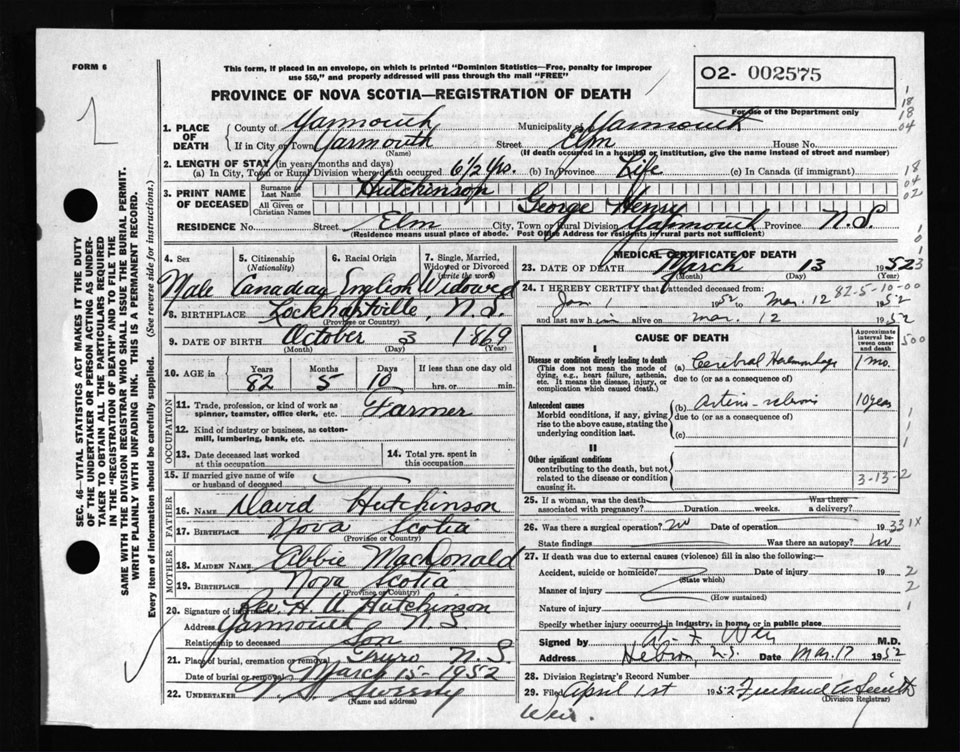 FORM 6
This form, if placed in an envelope, on which is printed "Dominion Statistics—Free, penalty for improper
use $50," and properly addressed will pass through the mail "FREE"
02- 002575
For use of the Department only
PROVINCE OF NOVA SCOTIA—REGISTRATION OF DEATH
1. PLACE OF DEATH
County of Yarmouth Municipality of Yarmouth
If in City or Town Yarmouth Street Elm House No.
(Name) (If death occurred in a hospital or institution, give the name instead of street and number)
2. LENGTH OF STAY (in years, months and days)
(a) In City, Town or Rural Division where death occurred 6 1/2 Yrs. (b) In Province Life (c) In Canada (if immigrant)
3. PRINT NAME OF DECEASED
Surname or Last Name Hutchinson
All Given or Christian Names George Henry
RESIDENCE No. Street Elm City, Town or Rural Division Yarmouth Province N.S.
(Residence means usual place of abode. Post Office Address for residents in rural parts not sufficient)
4. Sex 5. Citizenship (Nationality) 6. Racial Origin 7. Single, Married, Widowed or Divorced (write the word)
Male Canadian English Widowed
8. BIRTHPLACE Lockhartville, N.S.
(Province or Country)
9. DATE OF BIRTH October 3 1869
(Month) (Day) (Year)
10. AGE in Years Months Days If less than one day
82 5 10 hrs. or min.
OCCUPATION
11. Trade, profession or kind of work as
spinner, teamster, office clerk, etc. Farmer
12. Kind of industry or business, as cotton-
mill, lumbering, bank, etc.
13. Date deceased last worked
at this occupation
14. Total yrs. spent in
this occupation
15. If married give name of wife
or husband of deceased
FATHER
16. NAME David Hutchinson
17. BIRTHPLACE Nova Scotia
(Province or Country)
MOTHER
18. MAIDEN NAME Abbie MacDonald
19. BIRTHPLACE Nova Scotia
(Province or Country)
20. Signature of informant Rev. H. A. Hutchinson
Address Yarmouth N.S.
Relationship to deceased Son
21. Place of burial, cremation or removal Truro N.S.
Date of burial or removal March 15 - 1952
22. UNDERTAKER Sweeny
(Name and address)
MEDICAL CERTIFICATE OF DEATH
23. DATE OF DEATH March 13 1952
(Month) (Day) (Year)
24. I HEREBY CERTIFY that I attended deceased from:
82-5-10-00
Jan 1 1952 to Mar. 12 1952
and last saw him alive on Mar. 12 1952
CAUSE OF DEATH
Approximate interval between onset and death
I
Disease or condition directly leading to death
(This does not mean the mode of
dying, e.g., heart failure, asthenia,
etc. It means the disease, injury, or
complication which caused death.)
(a) Cerebral Haemorrhage 1 mo.
due to (or as a consequence of)
Antecedent causes
Morbid conditions, if any, giving
rise to the above cause, stating the
underlying condition last.
(b) 10 years
due to (or as a consequence of)
(c)
II
Other significant conditions
contributing to the death, but not
related to the disease or condition
causing it.
3-13-2
25. If a woman, was the death
associated with pregnancy? Duration weeks. Was there
a delivery?
26. Was there a surgical operation? no Date of operation 19 331X
State findings Was there an autopsy? no
27. If death was due to external causes (violence) fill in also the following:-
Accident, suicide or homicide? Date of injury 19
(State which)
Manner of injury
(How sustained)
Nature of injury
Specify whether injury occurred in industry, in home, or in public place
Signed by M.D.
Address Hebron, N.S. Date Mar. 17 1952
28. Division Registrar's Record Number
29. Filed April 1st 1952
(Division Registrar)
Weir.
SEC. 46—VITAL STATISTICS ACT MAKES IT THE DUTY
OF THE UNDERTAKER OR PERSON ACTING AS UNDER-
TAKER TO OBTAIN ALL THE PARTICULARS REQUIRED
IN THE "REGISTRATION OF DEATH" AND TO FILE THE
SAME WITH THE DIVISION REGISTRAR WHO SHALL ISSUE THE BURIAL PERMIT.
WRITE PLAINLY WITH UNFADING INK. THIS IS A PERMANENT RECORD.
Every item of information should be carefully supplied. (See reverse side for instructions.)